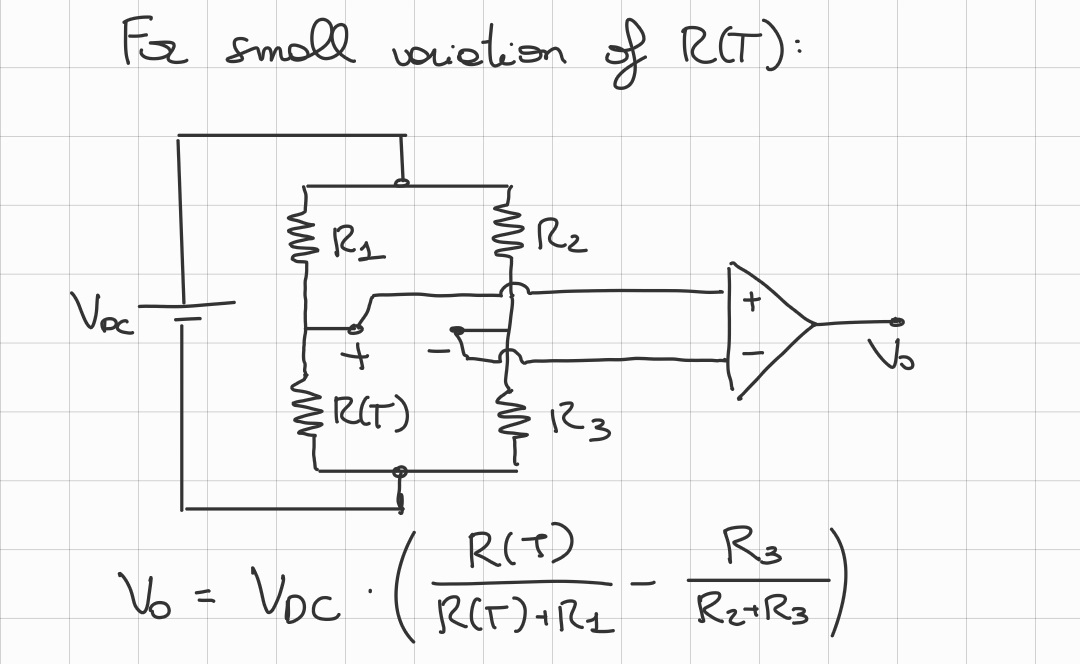 For small variation of R(T):
R1
R2
VDC
+
-
+
-
Vo
R(T)
R3
Vo = VDC · ( R(T) / R(T)+R1 - R3 / R2+R3 )